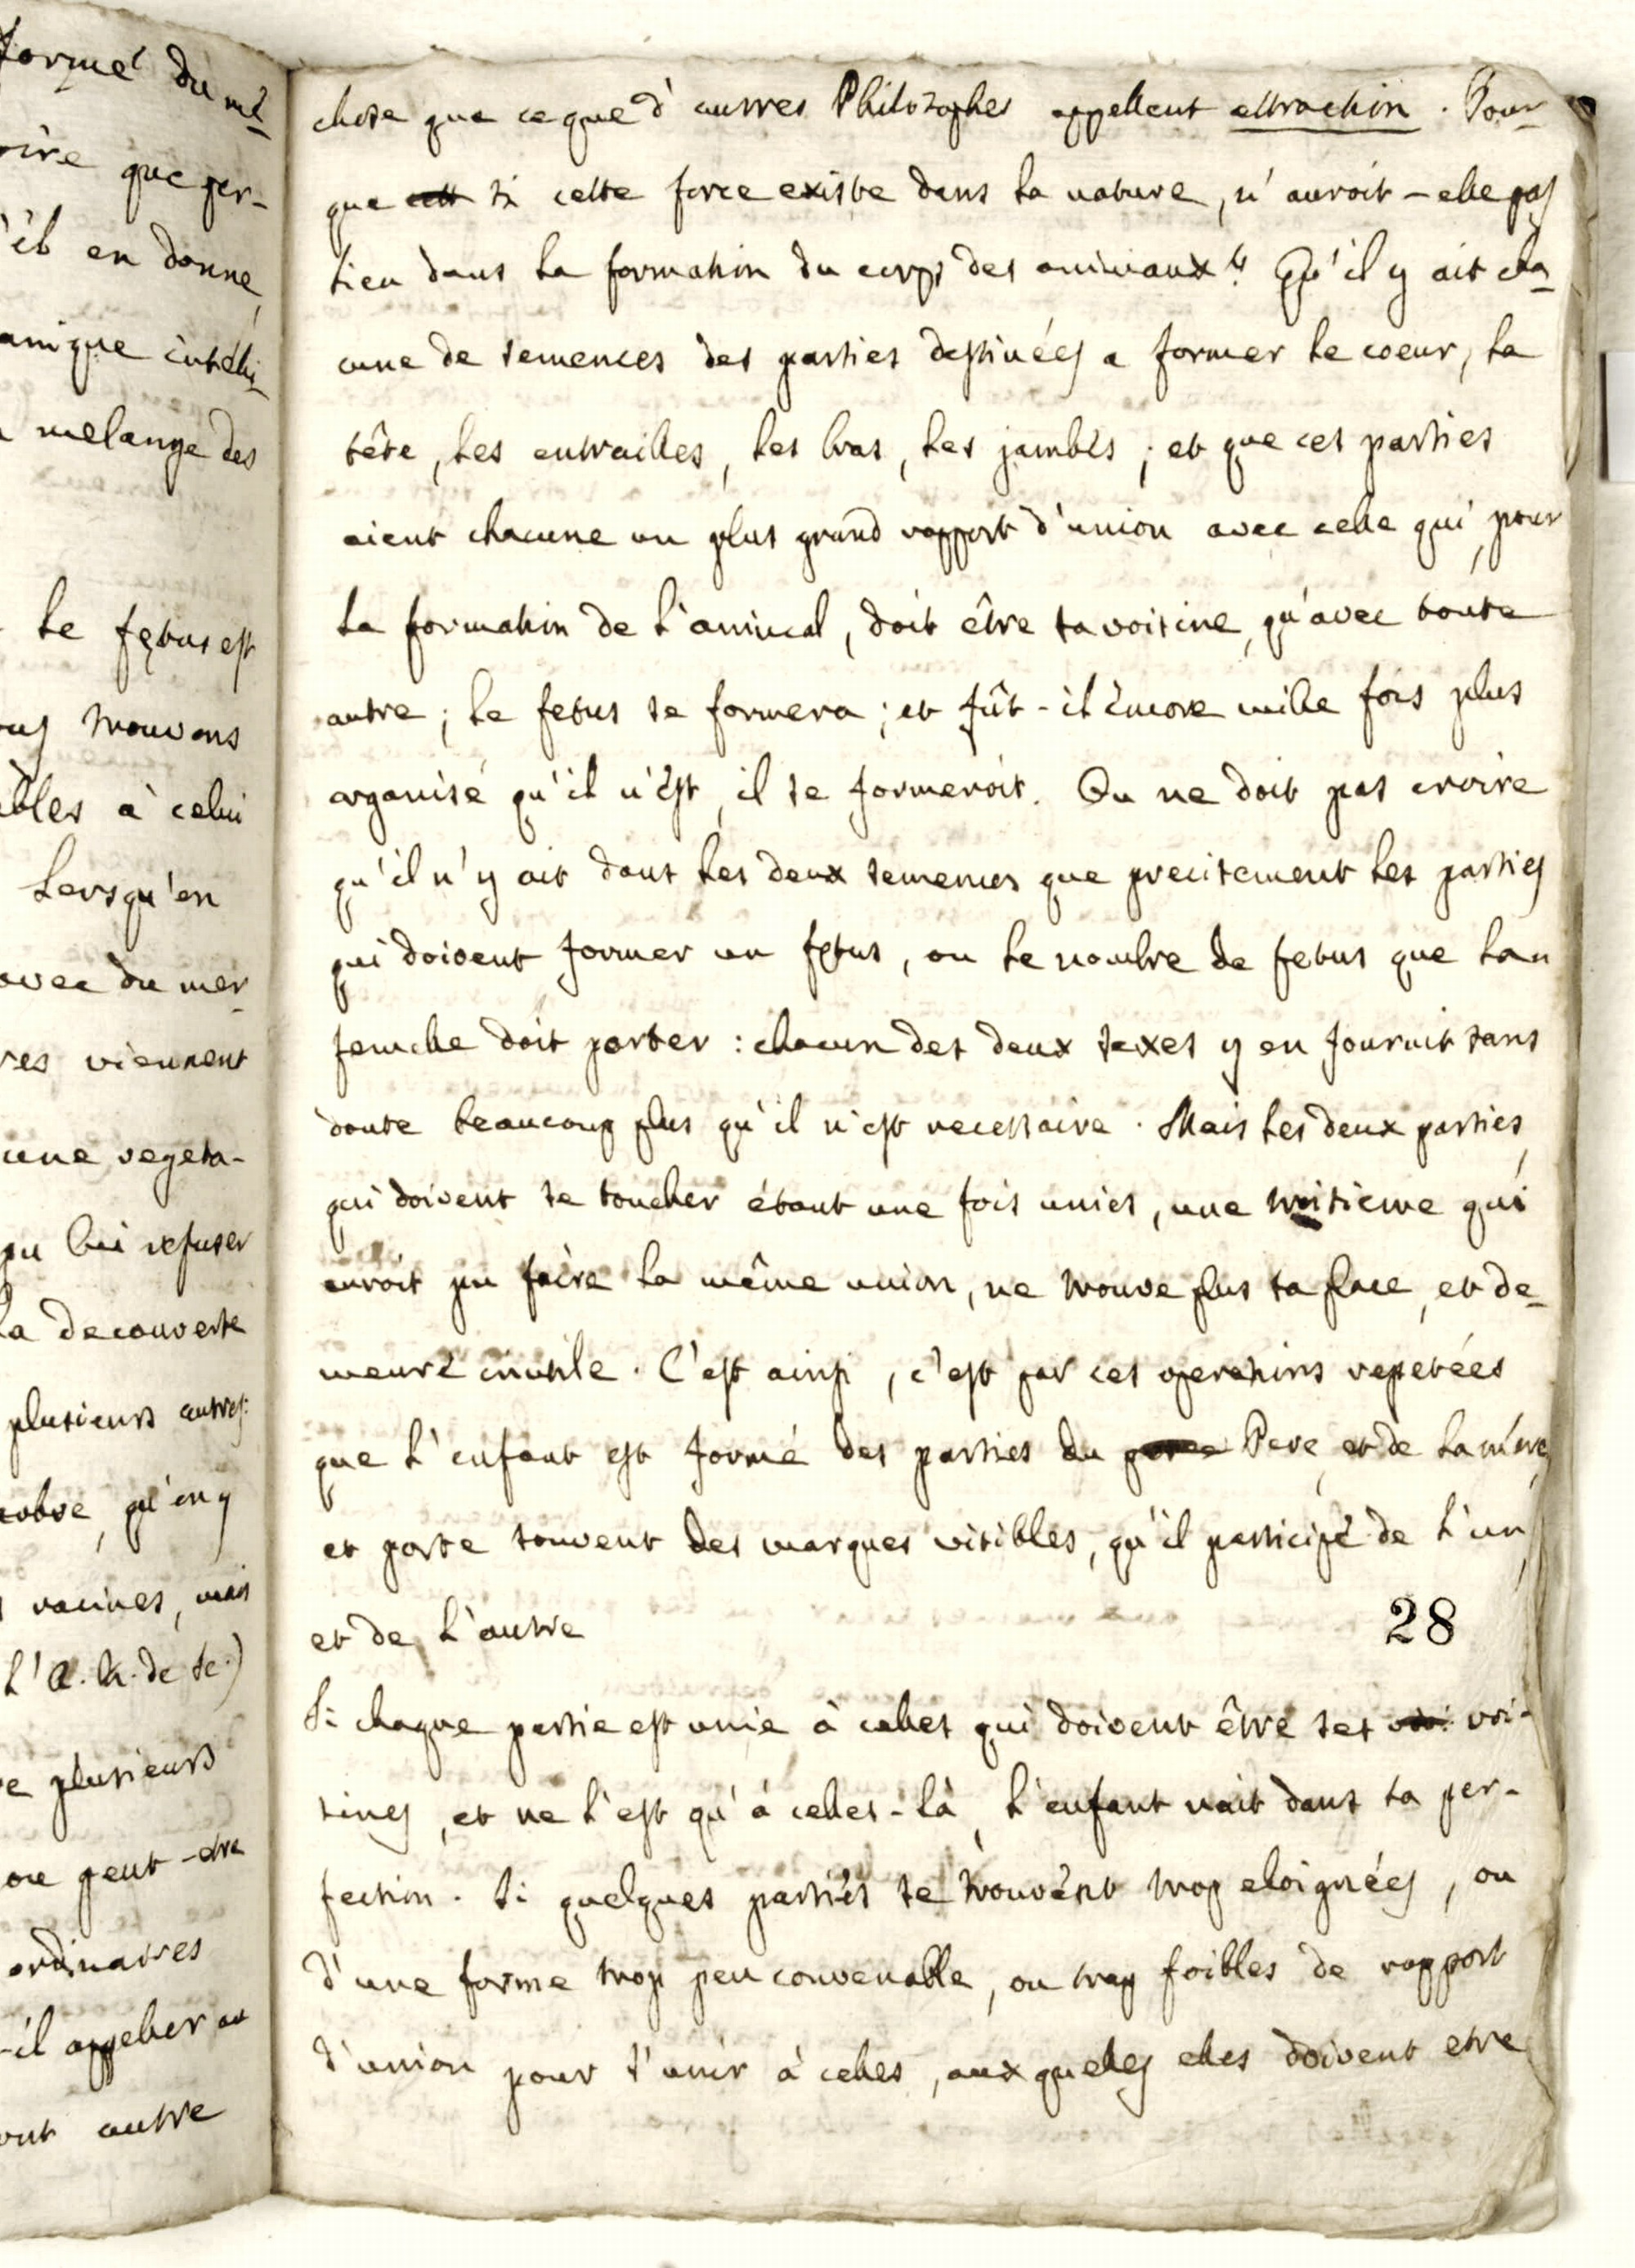 formé du mê-
oire que per-
'il en donne,
anique intéli-
melange des
le fętus est
ous trouvons
ables à celui
Lorsqu'en
avec du mer-
res viennent
une vegeta-
pu lui refuser
la decouverte
plusieurs autres:
arbre, qu'on y
racines, mais
l'A. R. de Sc.)
e plusieurs
ou peut-etre
ordinaires
-il appeller au
out autre
chose que ce que d'autres Philosophes appellent attraction. Pour-
que cett si cette force existe dans la nature, n'auroit-elle pas
lieu dans la formation du corps des animaux? Qu'il y ait cha-
cune de semences des parties destinées a former le coeur, la
tête, les entrailles, les bras, les jambes; et que ces parties
aient chacune un plus grand rapport d'union avec celle qui, pour
la formation de l'animal, doit être sa voisine, qu'avec toute
autre; le fetus se formera; et fût-il encore mille fois plus
organisé qu'il n'est, il se formeroit. On ne doit pas croire
qu'il n'y ait dans les deux semences que precisement les parties
qui doivent former un fętus, ou le nombre de fetus que la
femelle doit porter: chacun des deux sexes y en fournit sans
doute beaucoup plus qu'il n'est necessaire. Mais les deux parties,
qui doivent se toucher étant une fois unies, une troisieme qui
auroit pu faire la même union, ne trouve plus sa place, et de-
meure inutile. C'est ainsi, c'est par ces operations repetées
que l'enfant est formé des parties du pere Pere, et de la mére,
et porte souvent des marques visibles, qu'il participe de l'un,
et de l'autre
28
Si chaque partie est unie à celles qui doivent être ses voi voi-
sines, et ne l'est qu'à celles-là, l'enfant nait dans sa per-
fection. Si quelques parties se trouvent trop eloignées, ou
d'une forme trop peu convenable, ou trop foibles de rapport
d'union pour s'unir à celles, auxquelles elles doivent etre